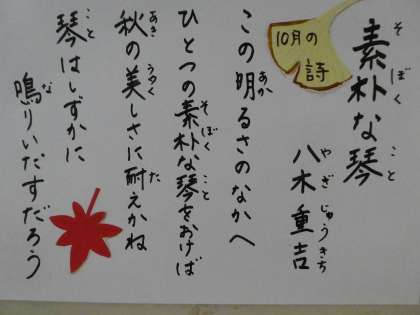 素朴な琴
そぼく こと
10月の
詩
八木重吉
やぎ じゅうきち
この明るさのなかへ
あか
ひとつの素朴な琴をおけば
そぼく こと
秋の美しさに耐えかね
あき うつく た
琴はしずかに
こと
鳴りいだすだろう
な